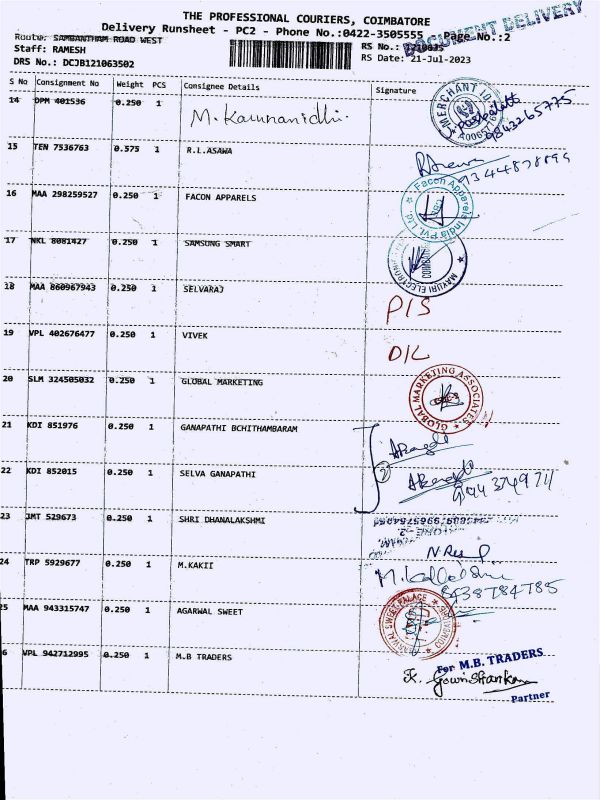 THE PROFESSIONAL COURIERS, COIMBATORE
Delivery Runsheet - PC2 - Phone No.:0422-3505555 Page No.:2
DOCUMENT DELIVERY
Route: SAMBANTHAM ROAD WEST
Staff: RAMESH RS No.:
DRS No.: DCJB121063502 RS Date: 21-Jul-2023
S No Consignment No Weight PCS Consignee Details Signature
14 DPM 401536 0.250 1 M. Karunanidhi. MERCHANT
9843265775
15 TEN 7536763 0.575 1 R.L.ASAWA
9344878899
16 MAA 298259527 0.250 1 FACON APPARELS Facon Apparels India Pvt. Ltd.
17 NKL 8081427 0.250 1 SAMSUNG SMART MAYURI ELECTRONIC
18 MAA 860967943 0.250 1 SELVARAJ P/S
19 VPL 402676477 0.250 1 VIVEK D/L
20 SLM 324505032 0.250 1 GLOBAL MARKETING GLOBAL MARKETING ASSOCIATES
21 KDI 851976 0.250 1 GANAPATHI BCHITHAMBARAM
22 KDI 852015 0.250 1 SELVA GANAPATHI 2
23 JMT 529673 0.250 1 SHRI DHANALAKSHMI
24 TRP 5929677 0.250 1 M.KAKII
8438784785
25 MAA 943315747 0.250 1 AGARWAL SWEET AGARWAL SWEET PALACE
6 VPL 942712995 0.250 1 M.B TRADERS For M.B. TRADERS
K. Gowri Shankar
Partner